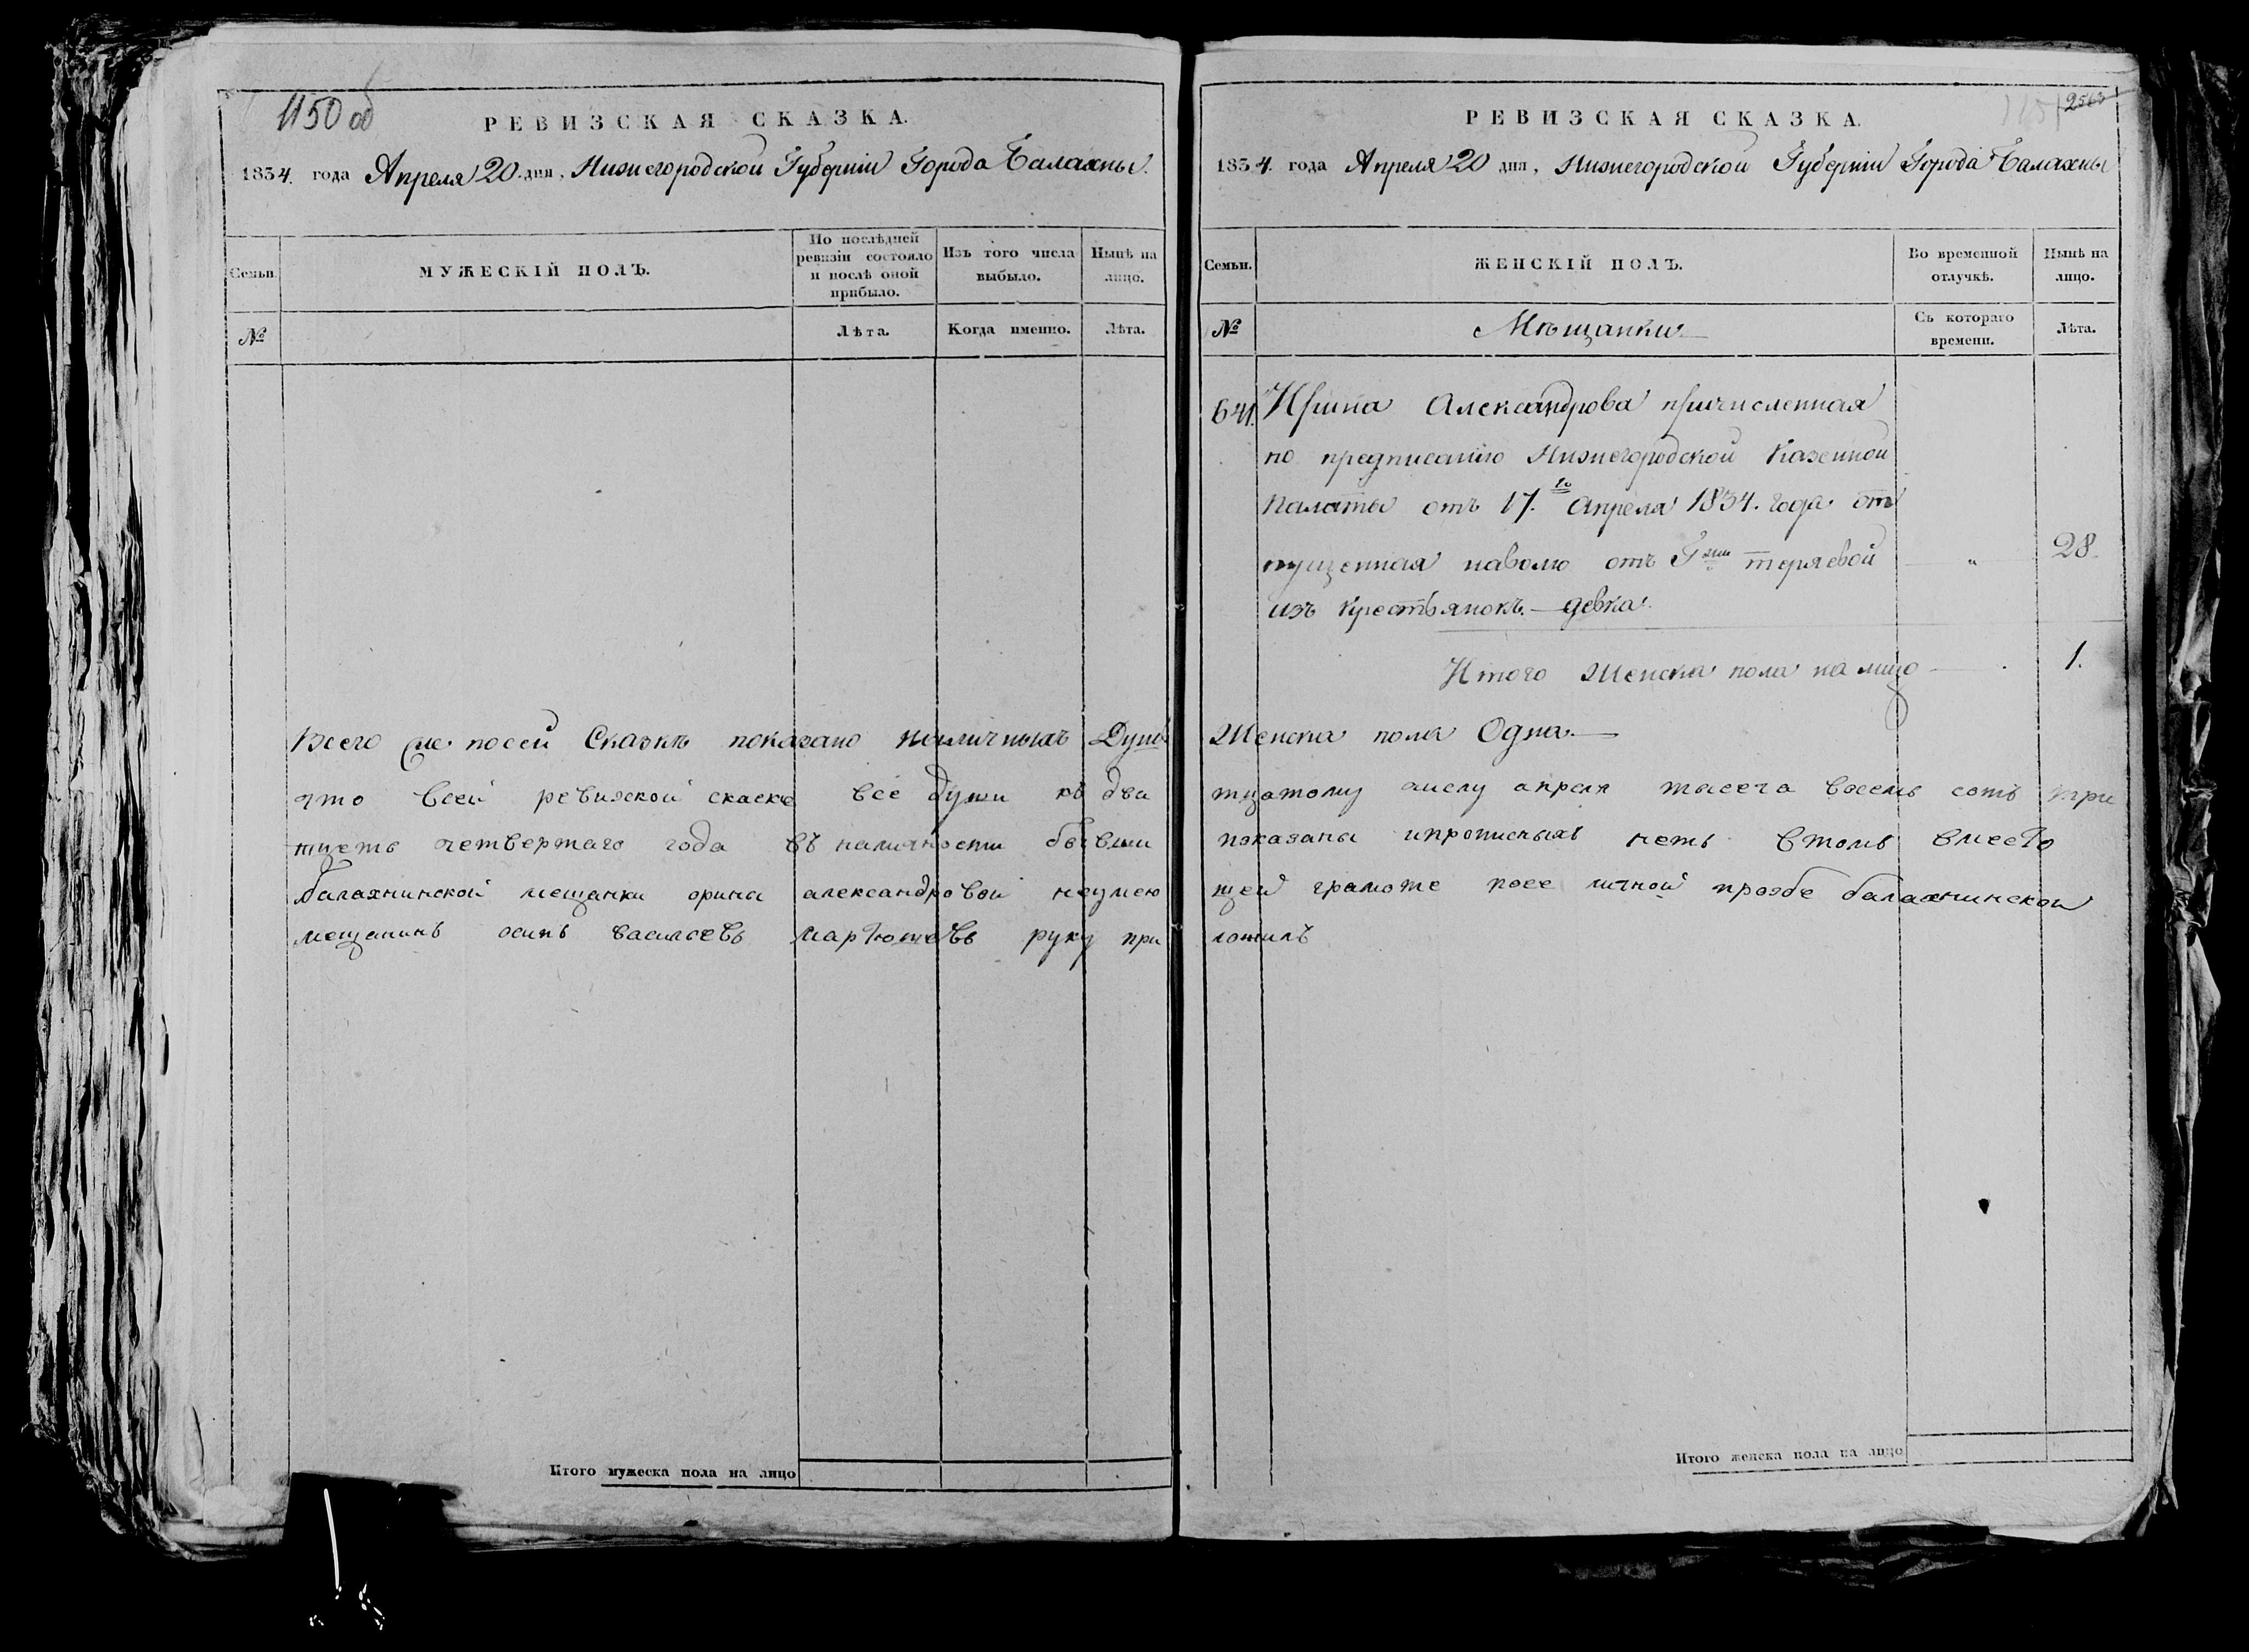 1150 об
РЕВИЗСКАЯ СКАЗКА.
1834. года Апреля 20. дня, Нижегородской Губерніи Города Балахны.
Семьи.
МУЖЕСКІЙ ПОЛЪ.
По послѣдней ревизіи состояло и послѣ оной прибыло.
Изъ того числа выбыло.
Нынѣ на лицо.
№
Лѣта.
Когда именно.
Лѣта.
Всего же посей Сказкѣ показано наличныхъ Душъ
что всей ревизской скаске все души къ два
тцеть четвертаго года въ наличности бывши
балахнинской мещанки орины александровой неумею
мещанинъ осипъ васильевъ руку при
Итого мужеска пола на лицо
2563
РЕВИЗСКАЯ СКАЗКА.
1834. года Апреля 20 дня, Нижегородской Губерніи Города Балахны
Семьи.
ЖЕНСКІЙ ПОЛЪ.
Во временной отлучкѣ.
Нынѣ на лицо.
№
Мѣщанки
Съ котораго времени.
Лѣта.
641. Ирина Александрова причисленная
по предписанію Нижегородской Казенной
Палаты отъ 17.го Апреля 1834. года. от
пущенная наволю отъ Гжи теряевой " 28.
изъ крестьянокъ. — девка.
Итого Женска пола на лицо 1.
Женска пола Одна. —
тцатому числу апреля тысеча восемь сотъ три
показаны ипрописныхъ нетъ втомъ вместо
щей грамоте поее личной прозбе балахнинской
ложилъ
Итого женска пола на лицо